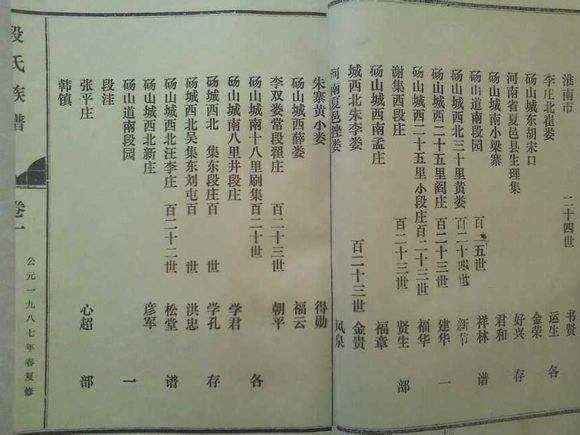 淮南市 二十四世 书贤
李庄北崔娄 运生 各
砀山城东胡宋口 金荣
河南省夏邑县生理集 好兴 存
砀山城南小梁寨 君和
砀山道南段园 百二五世 祥林 谱
砀山城西北三十里黄娄 百二十四世
砀山城西二十五里阎庄 百二十三世 建华 一
砀山城西二十五里小段庄 百二十三世 福华
谢集西段庄 百二十三世 贤生 部
砀山城西南孟庄 福章
城西北朱李娄 百二十三世 金贵
河南夏邑 娄 凤泉
朱寨黄小娄 得勋
砀山城西薛娄 福云
李双娄常段翟庄 百二十三世 朝平
砀山城南十八里刷集 百二十世 各
砀山城南八里井段庄 学君
砀城西北 集东段庄 百 世 学孔 存
砀城西北吴集东刘屯 百 世 洪忠
砀山城西北汪李庄 百二十二世 松堂 谱
砀山城西北新庄 彦军
砀山道南段园 一
段洼
张平庄 心超 部
韩镇
段氏族谱 卷一 公元一九八七年春夏修